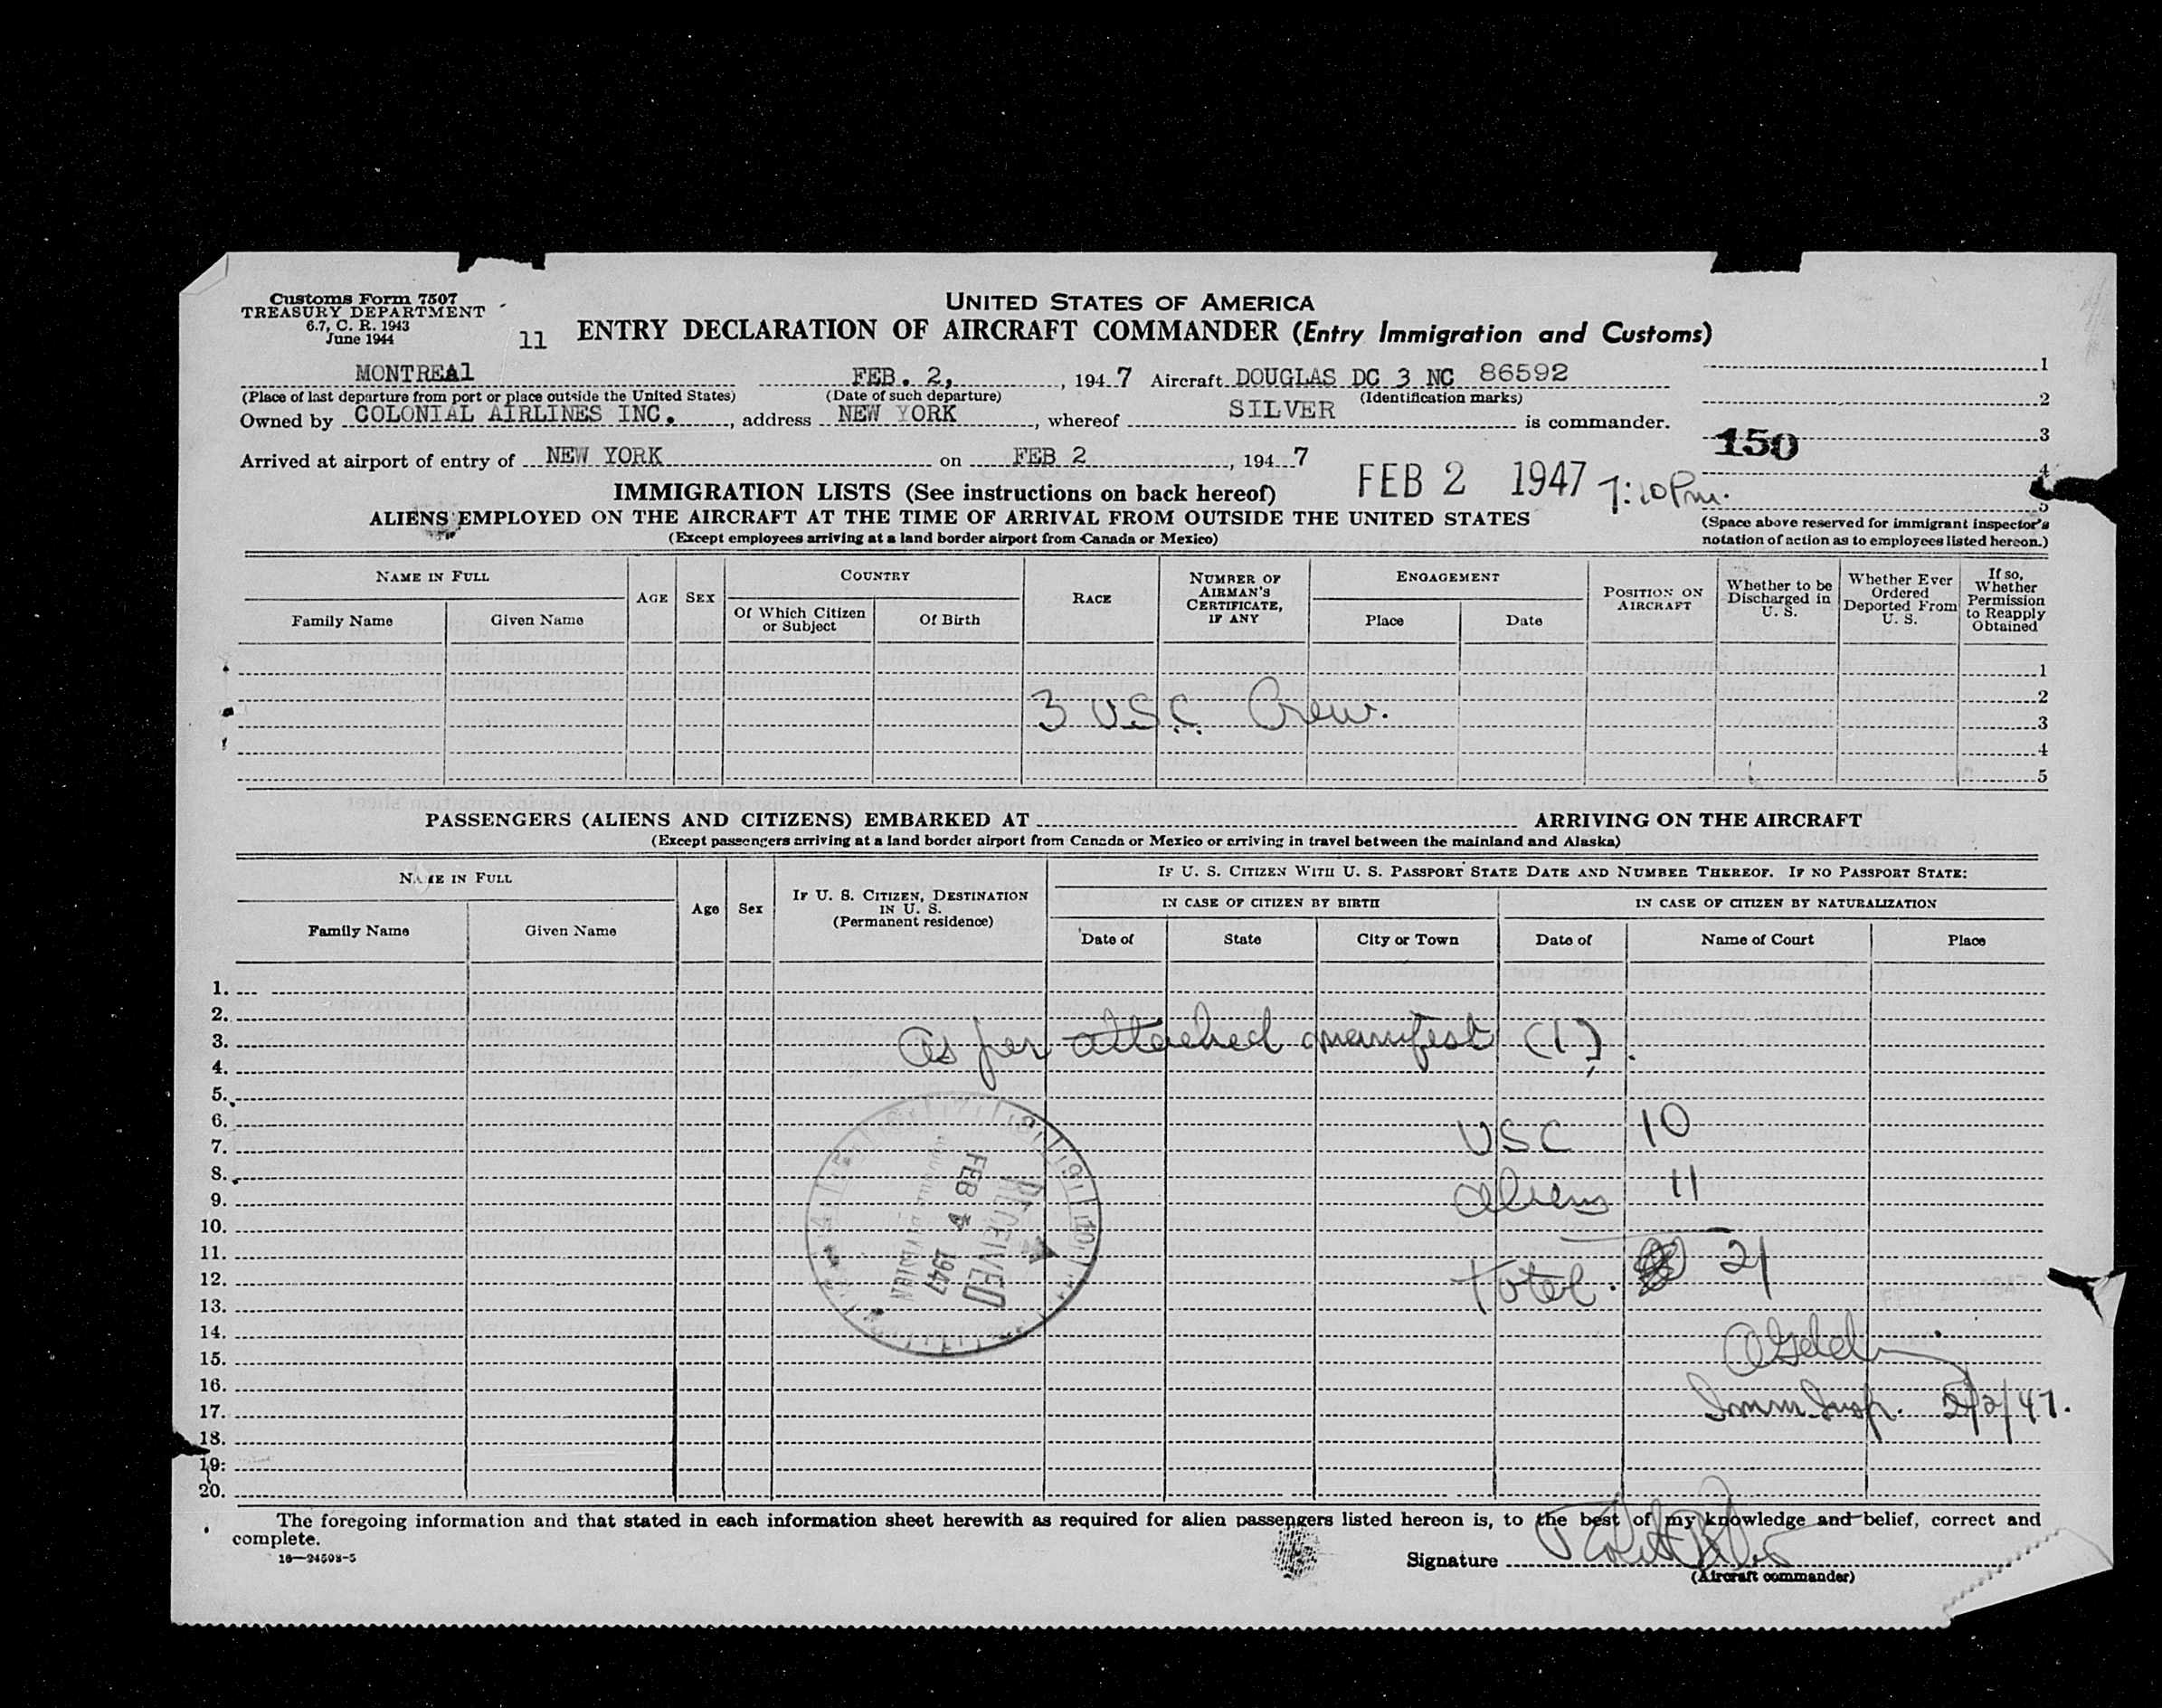 Customs Form 7507
TREASURY DEPARTMENT
6.7, C. R. 1943
June 1944
UNITED STATES OF AMERICA
11 ENTRY DECLARATION OF AIRCRAFT COMMANDER (Entry Immigration and Customs)
MONTREAl FEB. 2, , 194 7 Aircraft DOUGLAS DC 3 NC 86592
(Place of last departure from port or place outside the United States) (Date of such departure) (Identification marks)
Owned by COLONIAL AIRLINES INC. , address NEW YORK , whereof SILVER is commander.
Arrived at airport of entry of NEW YORK on FEB 2 , 194 7
1
2
150 3
4
5
FEB 2 1947 7:10 Pm.
(Space above reserved for immigrant inspector's
notation of action as to employees listed hereon.)
IMMIGRATION LISTS (See instructions on back hereof)
ALIENS EMPLOYED ON THE AIRCRAFT AT THE TIME OF ARRIVAL FROM OUTSIDE THE UNITED STATES
(Except employees arriving at a land border airport from Canada or Mexico)
NAME IN FULL
Family Name Given Name
AGE SEX
COUNTRY
Of Which Citizen or Subject Of Birth
RACE
NUMBER OF AIRMAN'S CERTIFICATE, IF ANY
ENGAGEMENT
Place Date
POSITION ON AIRCRAFT
Whether to be Discharged in U. S.
Whether Ever Ordered Deported From U. S.
If so, Whether Permission to Reapply Obtained
1
2
3 U.S.C. Crew. 3
4
5
PASSENGERS (ALIENS AND CITIZENS) EMBARKED AT ARRIVING ON THE AIRCRAFT
(Except passengers arriving at a land border airport from Canada or Mexico or arriving in travel between the mainland and Alaska)
NAME IN FULL
Family Name Given Name
Age Sex
IF U. S. CITIZEN, DESTINATION IN U. S. (Permanent residence)
IF U. S. CITIZEN WITH U. S. PASSPORT STATE DATE AND NUMBER THEREOF. IF NO PASSPORT STATE:
IN CASE OF CITIZEN BY BIRTH IN CASE OF CITIZEN BY NATURALIZATION
Date of State City or Town Date of Name of Court Place
1.
2.
3. As per attached manifest (1).
4.
5.
6. USC 10
7.
8.
9. Aliens 11
10.
11.
12. Total. 21
13.
14.
15.
16.
17. Imm Insp. 2/2/47.
18.
19.
20.
RECEIVED
FEB 4 1947
The foregoing information and that stated in each information sheet herewith as required for alien passengers listed hereon is, to the best of my knowledge and belief, correct and
complete.
16—24598-5
Signature
(Aircraft commander)